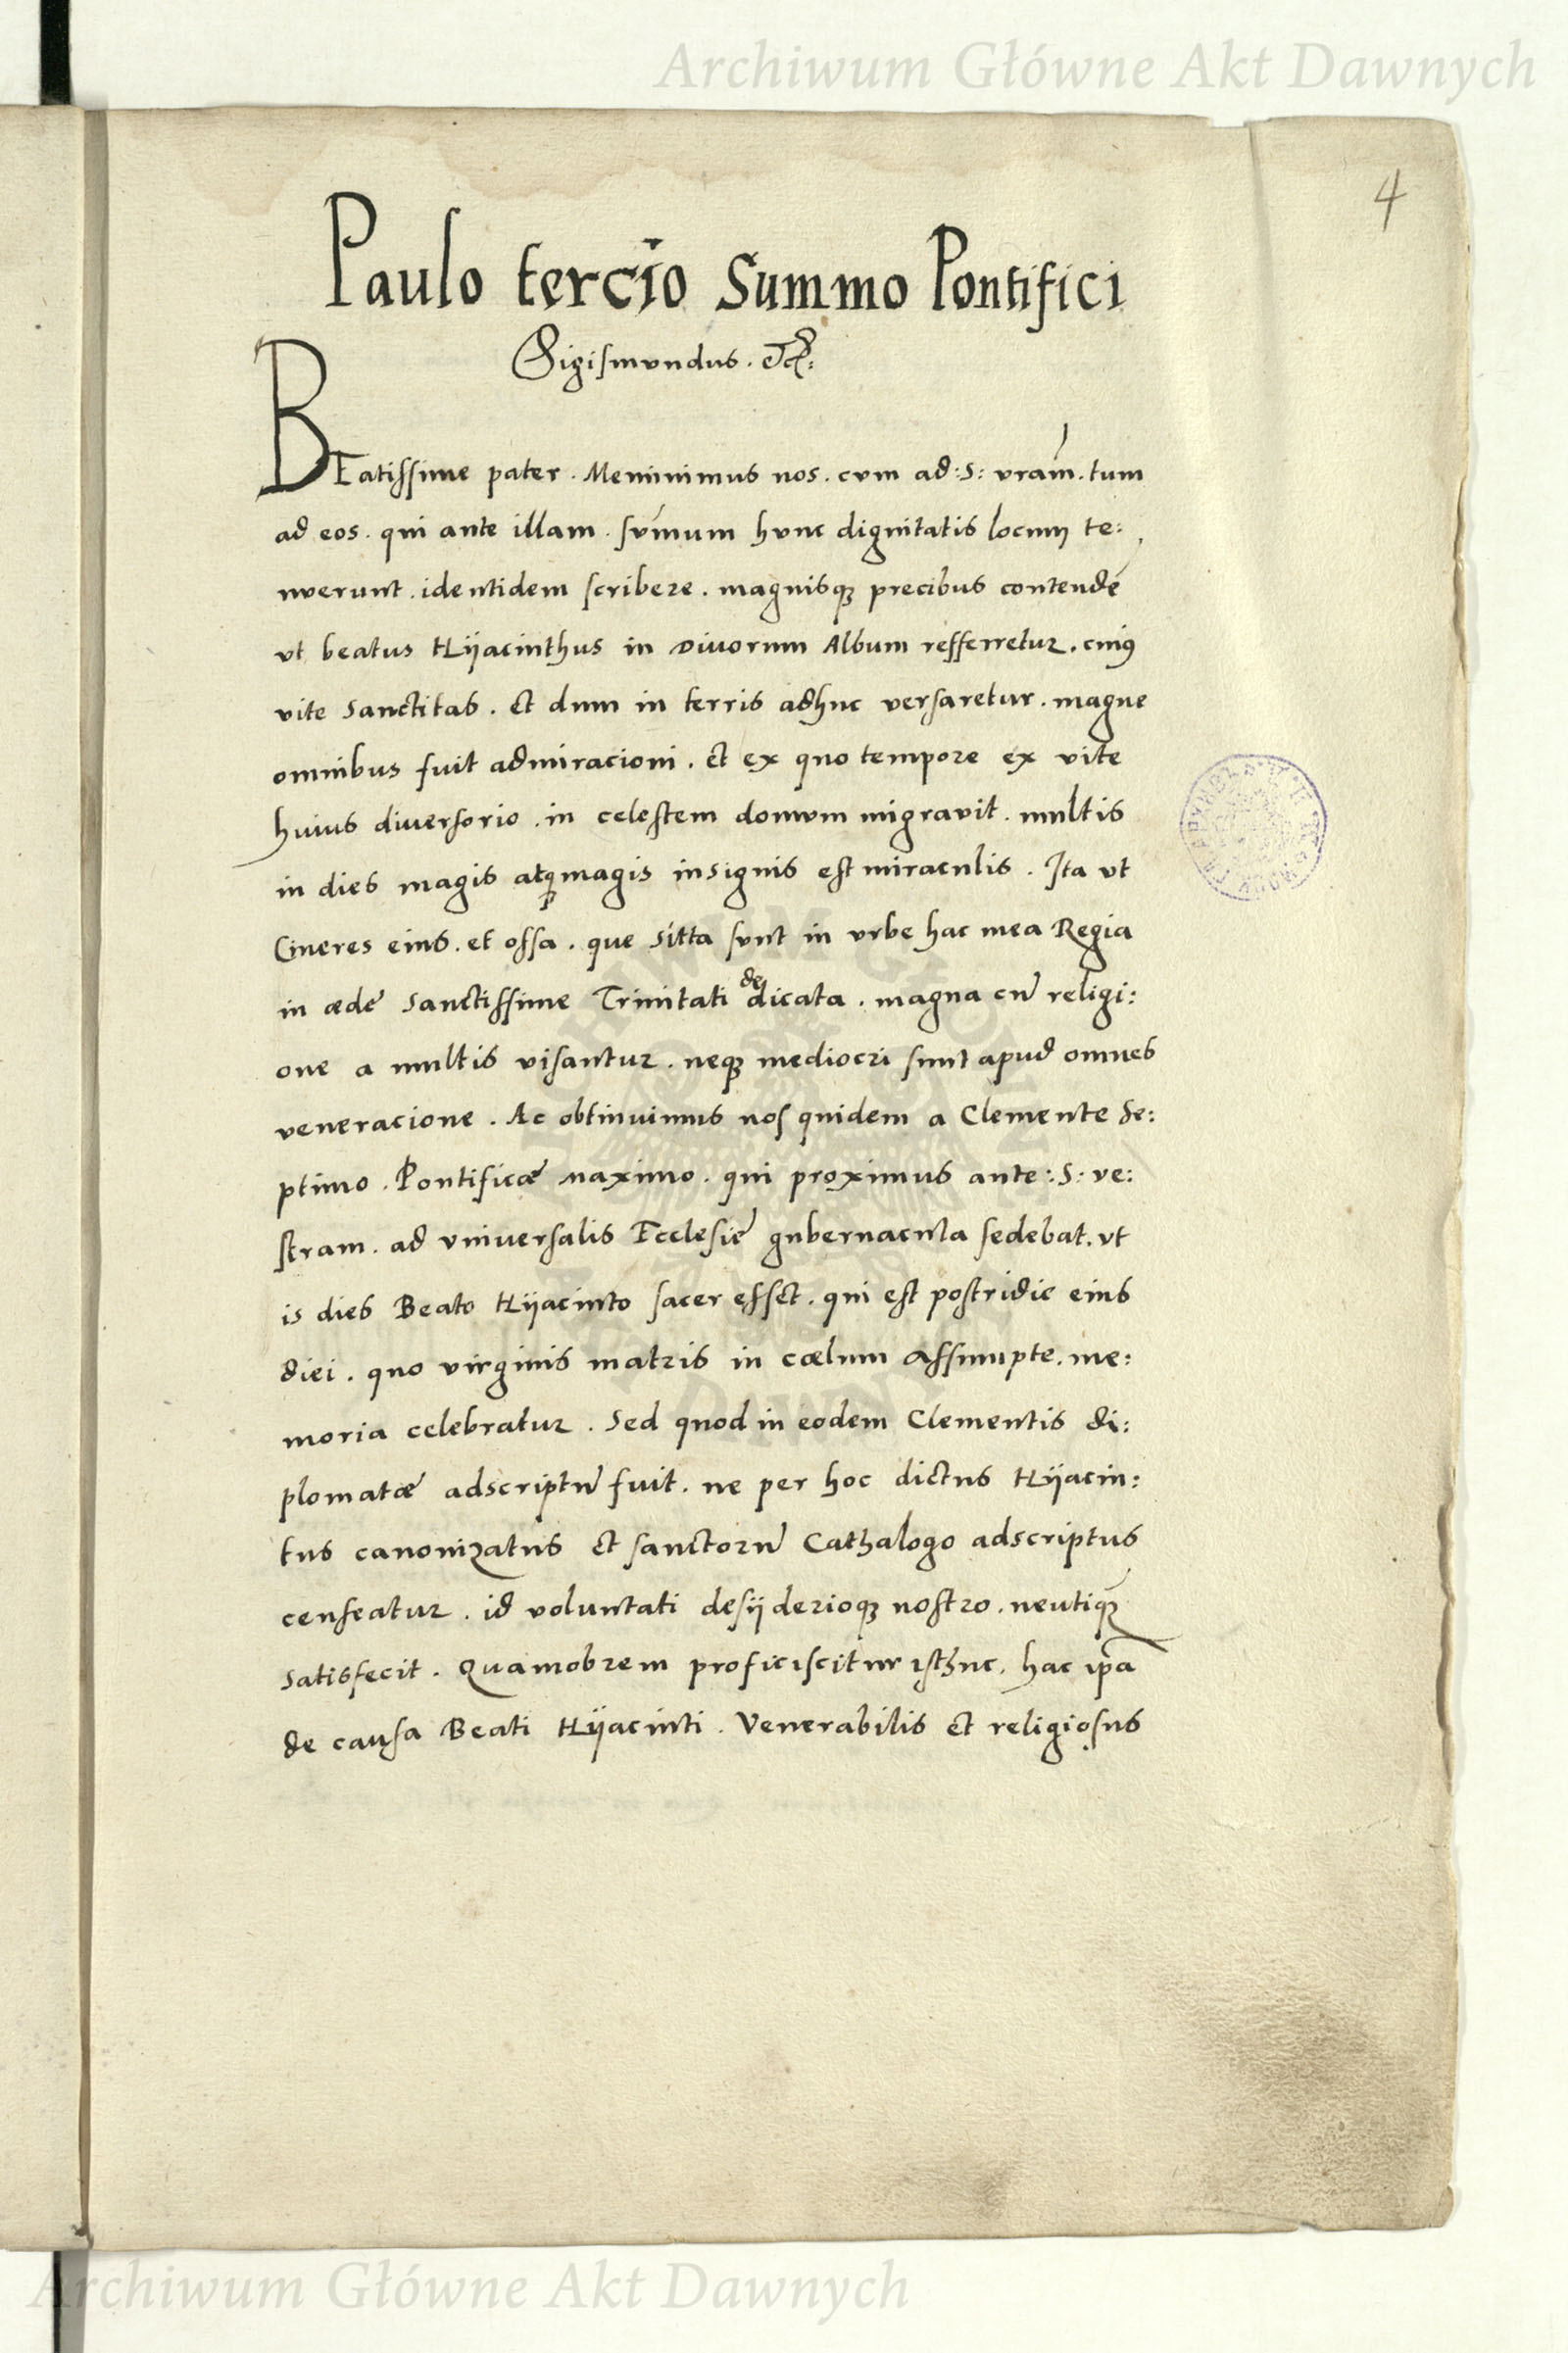 Archiwum Główne Akt Dawnych
4
Paulo tercio Summo Pontifici
Sigismundus. Etc:
BEatissime pater. Meminimus nos. cum ad: S: vram̄. tum
ad eos. qui ante illam. sūmum hunc dignitatis locum te:
nuerunt. identidem scribere. magnisqȝ precibus contendē
vt beatus Hÿacinthus in Divorum Album refferretur. cuiꝰ
vite Sanctitas. Et dum in terris adhuc versaretur. magne
omnibus fuit admiracioni. Et ex quo tempore ex vite
huius diversorio. in celestem domum migravit. multis
in dies magis atqȝ magis insignis est miraculis. Ita vt
Cineres eius. et ossa. que sitta sunt in vrbe hac mea Regia
in æde Sanctissime Trinitati dedicata. magna cū religi:
one a multis visantur. neqȝ mediocri sunt apud omnes
veneracione. Ac obtinuimus nos quidem a Clemente Se:
ptimo. Pontificæ maximo. qui proximus ante: S: ve:
stram. ad vniversalis Ecclesie gubernacula sedebat. vt
is dies Beato Hÿacinto sacer esset. qui est postridie eius
diei. quo virginis matris in cœlum assumpte. me:
moria celebratur. Sed quod in eodem Clementis di:
plomatæ adscriptū fuit. ne per hoc dictus Hÿacin:
tus canonizatus Et sanctorū Cathalogo adscriptus
censeatur. id voluntati desÿderioqȝ nostro. neutiqȝ
satisfecit. Quamobrem proficiscitur isthuc. hac ip̄a
de causa Beati Hÿacinti. Venerabilis Et religiosus
Archiwum Główne Akt Dawnych